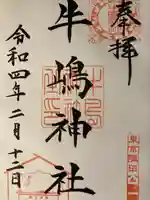 奉拝
牛嶋神社
令和四年二月十二日